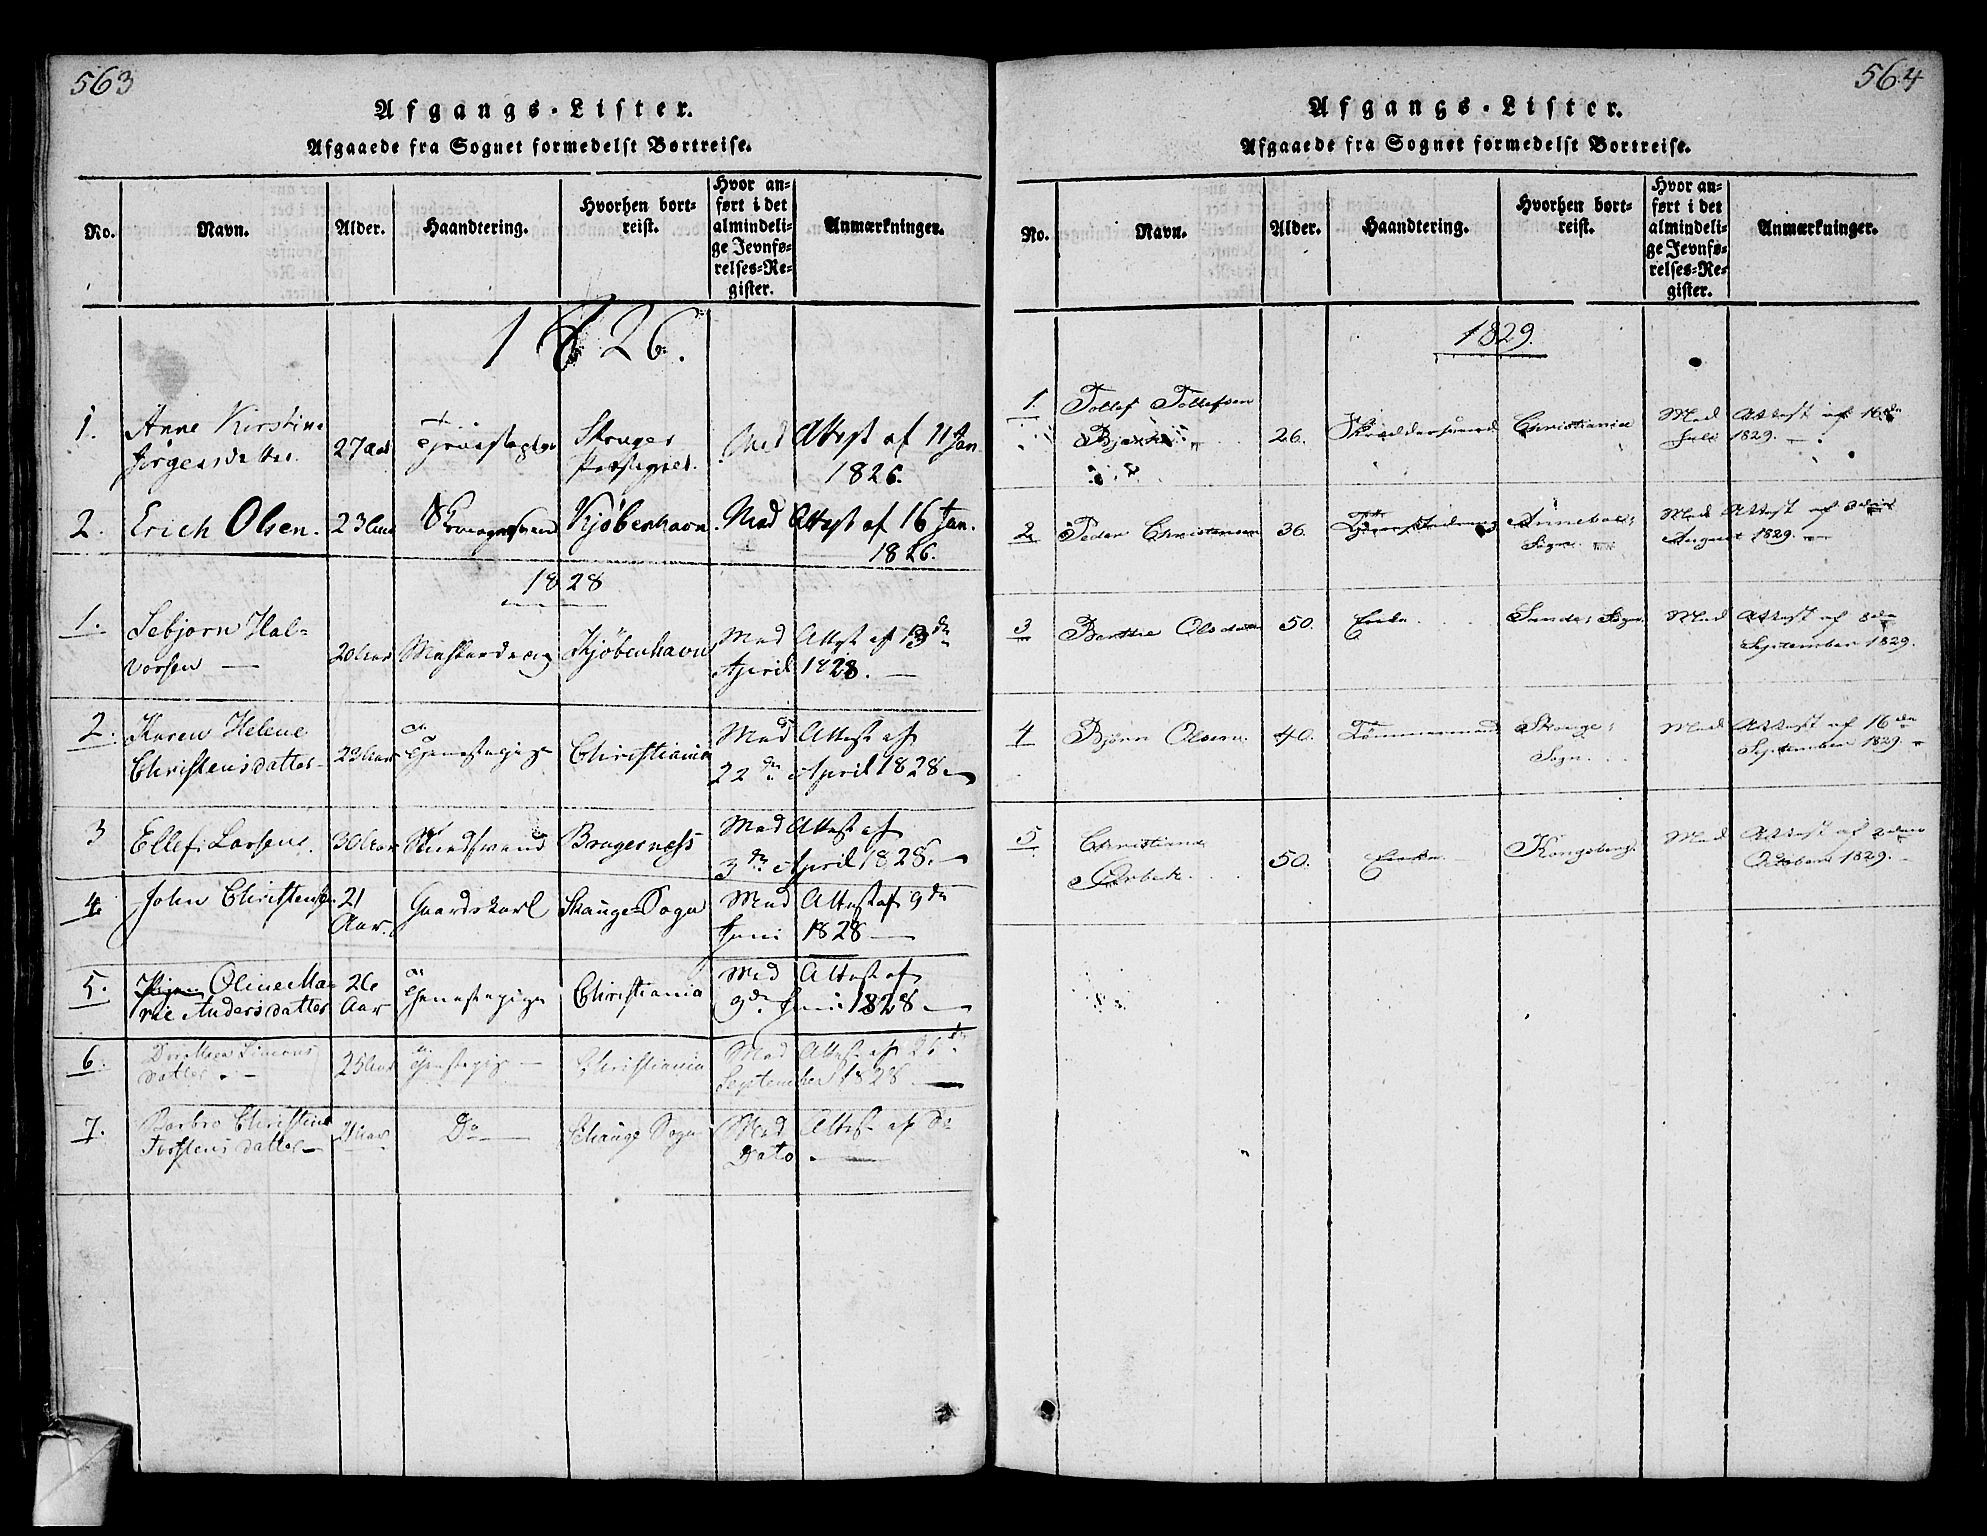 563
Afgangs-Lister.
Afgaaede fra Sognet formedelst Bortreise.
No. Navn. Alder. Haandtering. Hvorhen bortreist. Hvor anført i det almindelige Jevnførelses-Register. Anmærkninger.
1826.
1. Anne Kirstine
Jørgensdatter. 27 Aar Skouger Præstegjel. Med Attest af 11 Jan.
1826.
2. Erich Olsen. 23 Aar Kjøbenhavn. Med Attest af 16 Jan.
1826.
1828
1. Sebjørn Hal=
vorsen — 20 Aar Kjøbenhavn Med Attest af 13de
April 1828. —
2. Karen Helene
Christensdatter 23 Aar Tjenestepige Christiania Med Attest af
22de April 1828 —
3 Ellef Larsen. 30 Aar Bragernæss Med Attest af
3de April 1828. —
4 John Christensen 21
Aar. Gaardskarl Skauger Sogn Med Attest af 9de
Juni 1828 —
5. Oline Ma
rie Andersdatter 26
Aar Tjenestepige Christiania Med Attest af
9de Juni 1828 —
6. Dorthea Simons
datter. — 25 Aar Tjenestepige — Christiania Med Attest af 26de
September 1828 —
7. Barbro Christine
Torstensdatter — Do — Skauge Sogn Med Attest af Do
Dato. —
564
Afgangs-Lister.
Afgaaede fra Sognet formedelst Bortreise.
No. Navn. Alder. Haandtering. Hvorhen bortreist. Hvor anført i det almindelige Jevnførelses-Register. Anmærkninger.
1829.
1. Tollef Tollefsen
26. Skreddersvend Christiania Med Attest af 16de
Juli 1829. —
2 Peder Christensen 36. Sogn Med Attest af
August 1829. —
3 Berthe Olsdatter 50. Enke. Sande Sogn Med Attest af 8de
September 1829.
4 Bjørn Olsen. 40. Tømmermand Skouge
Sogn. Med Attest af 16de
September 1829.
5 Christiane
50. Enke. Kongsberg Med Attest af
October 1829. —